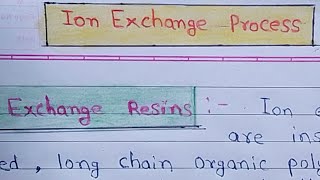 Ion Exchange Process
Exchange Resins :- Ion
are
, long chain organic